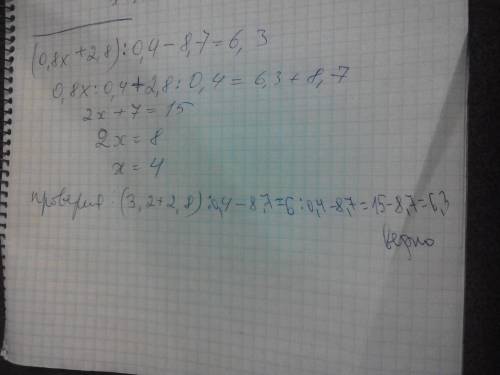 (0,8x+2,8):0,4-8,7=6,3
0,8x:0,4+2,8:0,4=6,3+8,7
2x+7=15
2x=8
x=4
проверка: (3,2+2,8):0,4-8,7=6:0,4-8,7=15-8,7=6,3
верно